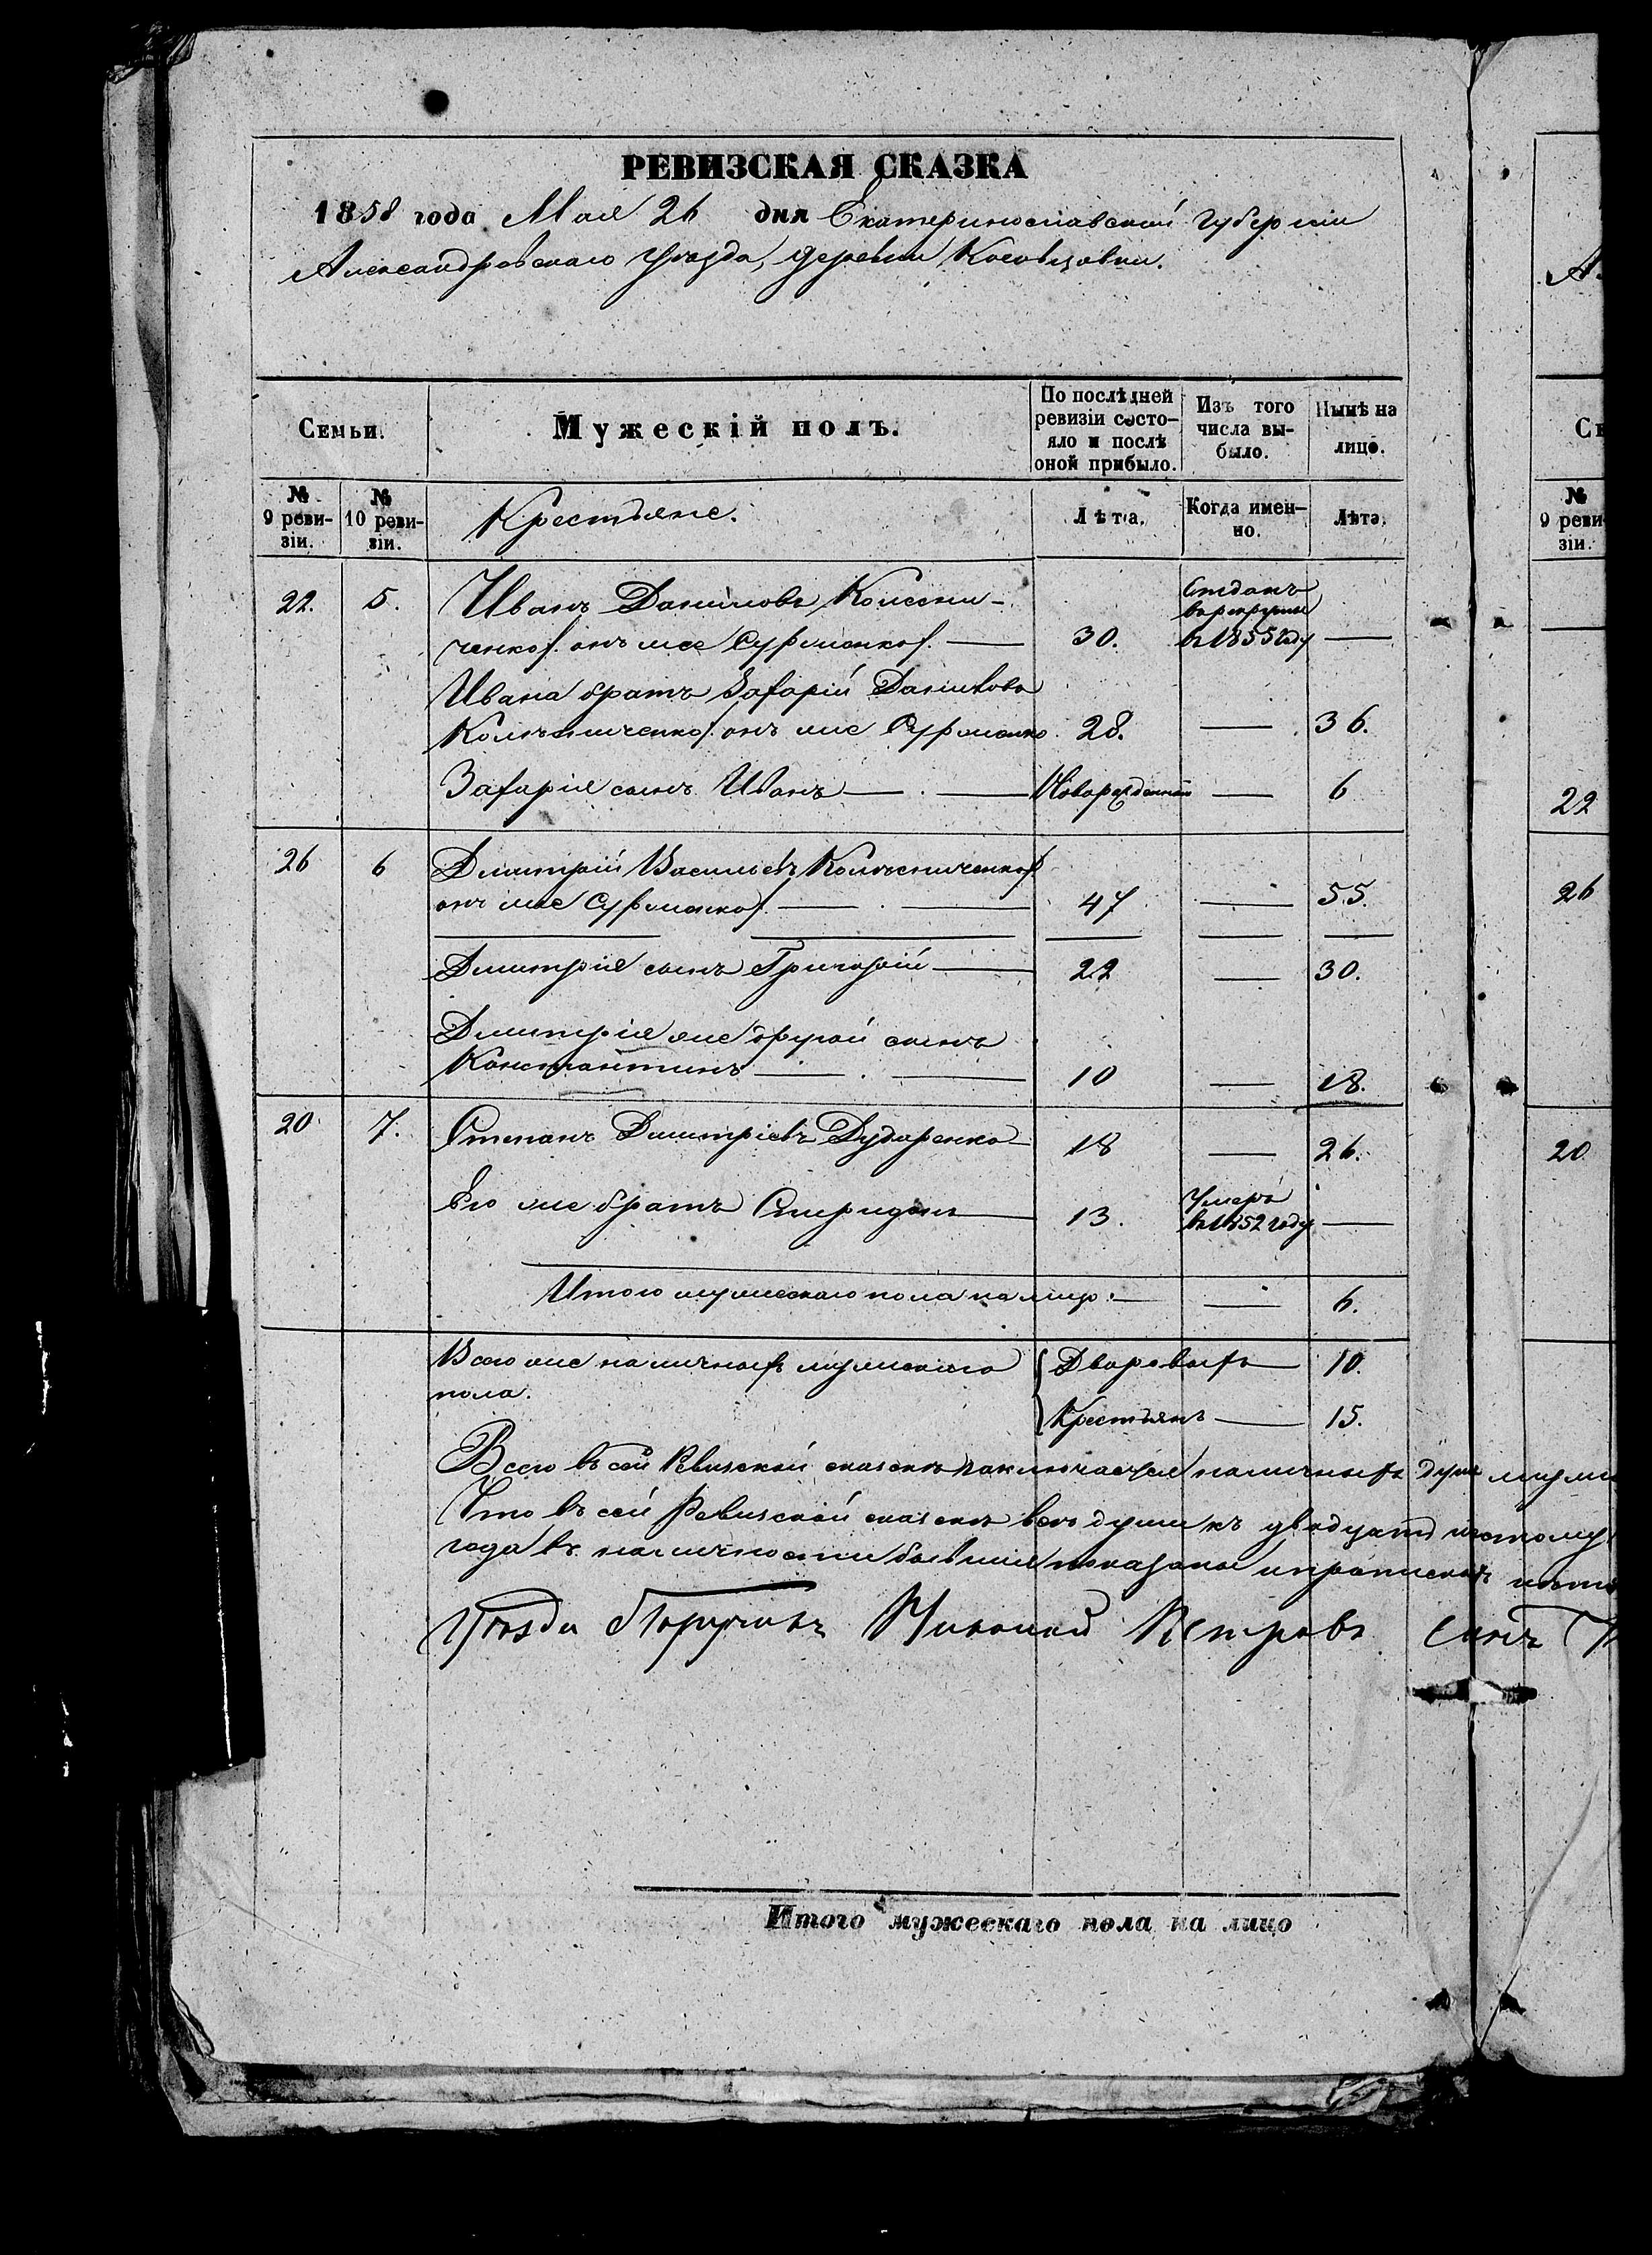 РЕВИЗСКАЯ СКАЗКА
1858 года Мая 26 дня Екатеринославской губернiи
Александровскаго уѣзда, деревни
Семьи.
Мужескiй полъ.
По послѣдней ревизiи состо-
яло и послѣ
оной прибыло.
Изъ того
числа вы-
было.
Нынѣ на
лицо.
№
9 реви-
зiи.
№
10 реви-
зiи.
Крестьяне.
Лѣта.
Когда имен-
но.
Лѣта.
22. 5. Иванъ Даниловъ Колесни-
ченко онъ же Сурженко 30. Отданъ в рекруты в 1855 году —
Ивана братъ Захарiй Даниловъ
Колѣсниченко онъ же Сурженко 28. — 36.
Захарiя сынъ Иванъ — Новорожденный — 6
26 6 Дмитрiй Васильевъ Колѣсниченко
онъ же Сурженко 47 — 55.
Дмитрiя сынъ Григорiй — 22 — 30.
Дмитрiя же другой сынъ
Константинъ — 10 — 18.
20 7. Степанъ Дмитрiевъ Дударенко 18 — 26.
Его же братъ Спиридонъ — 13. Умеръ в 1852 году —
Итого мужескаго пола на лицо: — — 6.
Всего же наличныхъ мужескаго
пола.
Дворовыхъ — 10.
Крестьянъ — 15.
Всего въ сей Ревизской сказкѣ заключается наличныхъ душъ
Что въ сей Ревизской сказкѣ всѣ души къ двадцать шестому
года въ наличности бывшiя показаны и прописныхъ
Уѣзда Поручикъ Николай Петровъ сынъ
Итого мужескаго пола на лицо
№
9 реви
зiи.
22
26
20